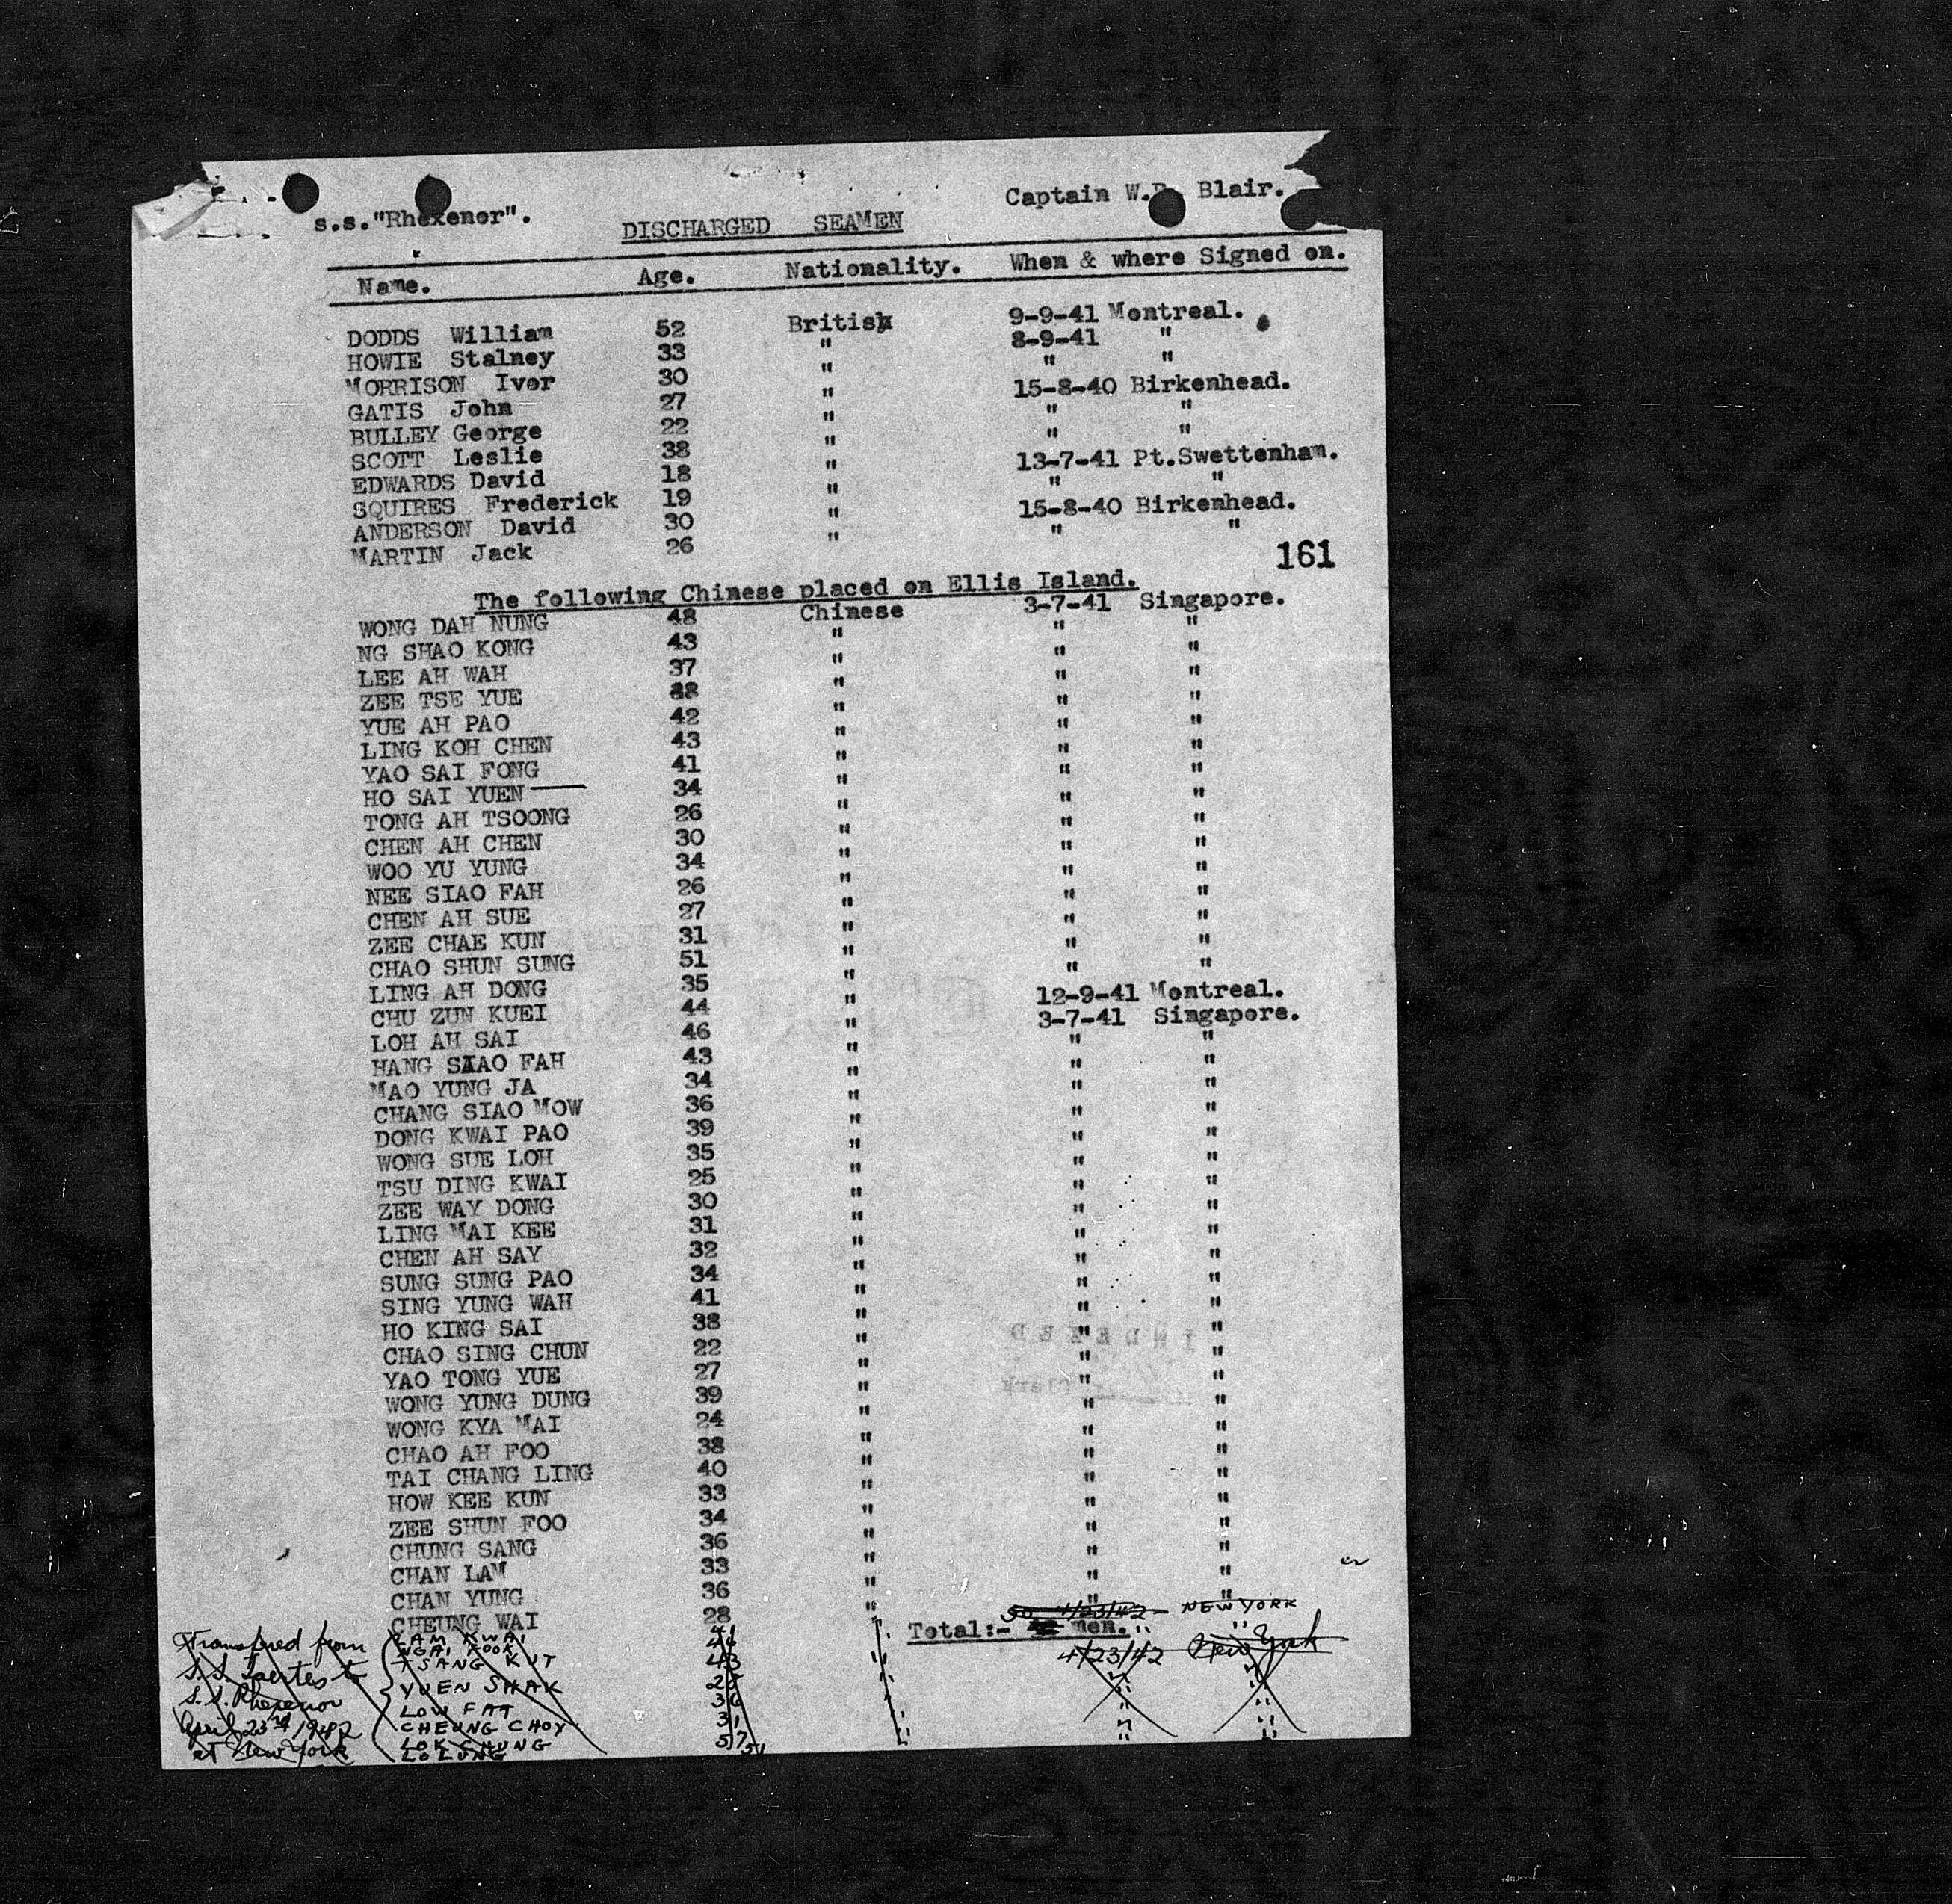 s.s."Rhexenor". Captain W. Blair.
DISCHARGED SEAMEN
Name. Age. Nationality. When & where Signed on.
DODDS William 52 British 9-9-41 Montreal.
HOWIE Stalney 33 " 8-9-41 "
MORRISON Ivor 30 " " "
GATIS John 27 " 15-8-40 Birkenhead.
BULLEY George 22 " " "
SCOTT Leslie 38 " " "
EDWARDS David 18 " 13-7-41 Pt.Swettenham.
SQUIRES Frederick 19 " " "
ANDERSON David 30 " 15-8-40 Birkenhead.
MARTIN Jack 26 " " "
161
The following Chinese placed on Ellis Island.
WONG DAH NUNG 48 Chinese 3-7-41 Singapore.
NG SHAO KONG 43 " " "
LEE AH WAH 37 " " "
ZEE TSE YUE 38 " " "
YUE AH PAO 42 " " "
LING KOH CHEN 43 " " "
YAO SAI FONG 41 " " "
HO SAI YUEN 34 " " "
TONG AH TSOONG 26 " " "
CHEN AH CHEN 30 " " "
WOO YU YUNG 34 " " "
NEE SIAO FAH 26 " " "
CHEN AH SUE 27 " " "
ZEE CHAE KUN 31 " " "
CHAO SHUN SUNG 51 " " "
LING AH DONG 35 " " "
CHU ZUN KUEI 44 " 12-9-41 Montreal.
LOH AH SAI 46 " 3-7-41 Singapore.
HANG SIAO FAH 43 " " "
MAO YUNG JA 34 " " "
CHANG SIAO MOW 36 " " "
DONG KWAI PAO 39 " " "
WONG SUE LOH 35 " " "
TSU DING KWAI 25 " " "
ZEE WAY DONG 30 " " "
LING MAI KEE 31 " " "
CHEN AH SAY 32 " " "
SUNG SUNG PAO 34 " " "
SING YUNG WAH 41 " " "
HO KING SAI 38 " " "
CHAO SING CHUN 22 " " "
YAO TONG YUE 27 " " "
WONG YUNG DUNG 39 " " "
WONG KYA MAI 24 " " "
CHAO AH FOO 38 " " "
TAI CHANG LING 40 " " "
HOW KEE KUN 33 " " "
ZEE SHUN FOO 34 " " "
CHUNG SANG 36 " " "
CHAN LAM 33 " " "
CHAN YUNG 36 " " "
CHEUNG WAI 28 " " "
4/23/42 NEW YORK
Total:- men.
4/23/42 New York
Transfered from
S.S. Laertes to
S.S. Rhexenor
April 23rd 1942
at New York
LAM KWAI
NGAI KOOK
TSANG KUT 43
YUEN SHAK
LOW FAT 36
CHEUNG CHOY 31
LOK CHUNG 57
LO LUNG 51